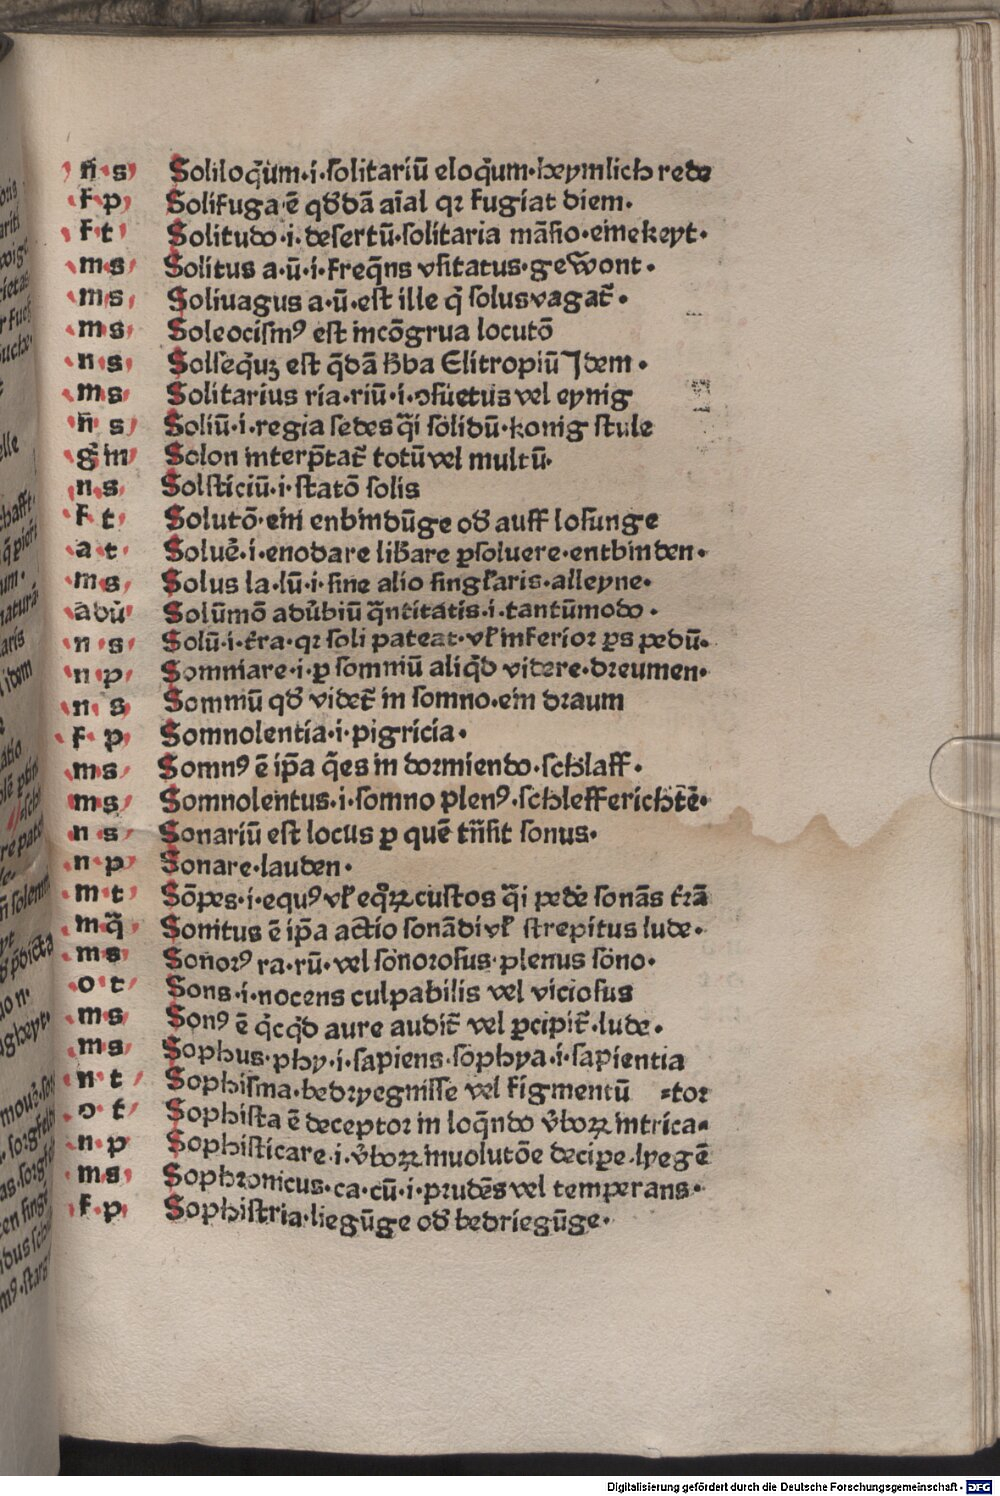 n̄ s Soliloq̄um·i·ſolitariū eloq̄um·heymlich rede
f p Solifuga·ē qd̄dā aīal qꝛ fugiat diem·
f t Solitudo·i·deſertū·ſolitaria māſio·einekeyt·
m s Solitus a·ū·i·freq̄ns vſitatus·gewont·
m s Soliuagus a·ū·eſt ille q̄ ſolusvagat᷑·
m s Soleociſmꝰ eſt incōgrua locutō
n s Solſeq̄uꝫ eſt q̄dā h̄ba Elitropiū Jdem·
m s Solitarius ria·riū·i·ↄſuetus vel eynig
n̄ s Soliū·i·regia ſedes q̄i ſolidū·konig ſtule
ḡ in Solon interp̄tat᷑ totū vel multū·
n s Solſticiū·i·ſtatō ſolis
f t Solutō·ein enbindūge od̄ auff loſunge
a t Soluē·i·enodare lib̄are ꝑſoluere·entbinden·
m s Solus la·lū·i·ſine alio ſingl̄aris·alleyne·
adū Solūmō adūbiū q̄ntitatis·i·tantūmodo·
n s Solū·i·t̄ra·qꝛ ſoli pateat·vl̄ inferioꝛ ꝑs pedū·
n p Somniare·i·ꝑ ſomniū aliq̄d videre·dreumen·
n s Somniū qd̄ videt᷑ in ſomno·ein dꝛaum
f p Somnolentia·i·pigricia·
m s Somnꝰ ē ip̄a q̄es in doꝛmiendo·ſchlaff·
m s Somnolentus·i·ſomno plenꝰ·ſchlefferichtē·
n s Sonariū eſt locus ꝑ quē trāſit ſonus·
n p Sonare·lauden·
m t Sōpes·i·equꝰ vl̄ eq̄oꝝ cuſtos q̄i pede ſonās t̄rā
m q̄ Sonitus ē ip̄a actio ſonādi vl̄ ſtrepitus lude·
m s Sonoꝛꝰ ra·rū·vel ſonoꝛoſus·plenus ſono·
o t Sons·i·nocens culpabilis vel vicioſus
m s Sonꝰ ē q̄cq̄d aure audit᷑ vel ꝑcipit᷑·lude·
m s Sophus·phy·i·ſapiens·ſophya·i·ſapientia
n t Sophiſma·bedꝛyegniſſe vel figmentū ⸗toꝛ
o t Sophiſta ē deceptoꝛ in loq̄ndo v̄boꝝ intrica⸗
n p Sophiſticare·i·v̄boꝝ inuolutōe decipe·lyegē
m s Sophꝛonicus·ca·cū·i·pꝛudēs vel temperans·
f p Sophiſtria·liegūge od̄ bedriegūge·
Digitalisierung gefördert durch die Deutsche Forschungsgemeinschaft - DFG